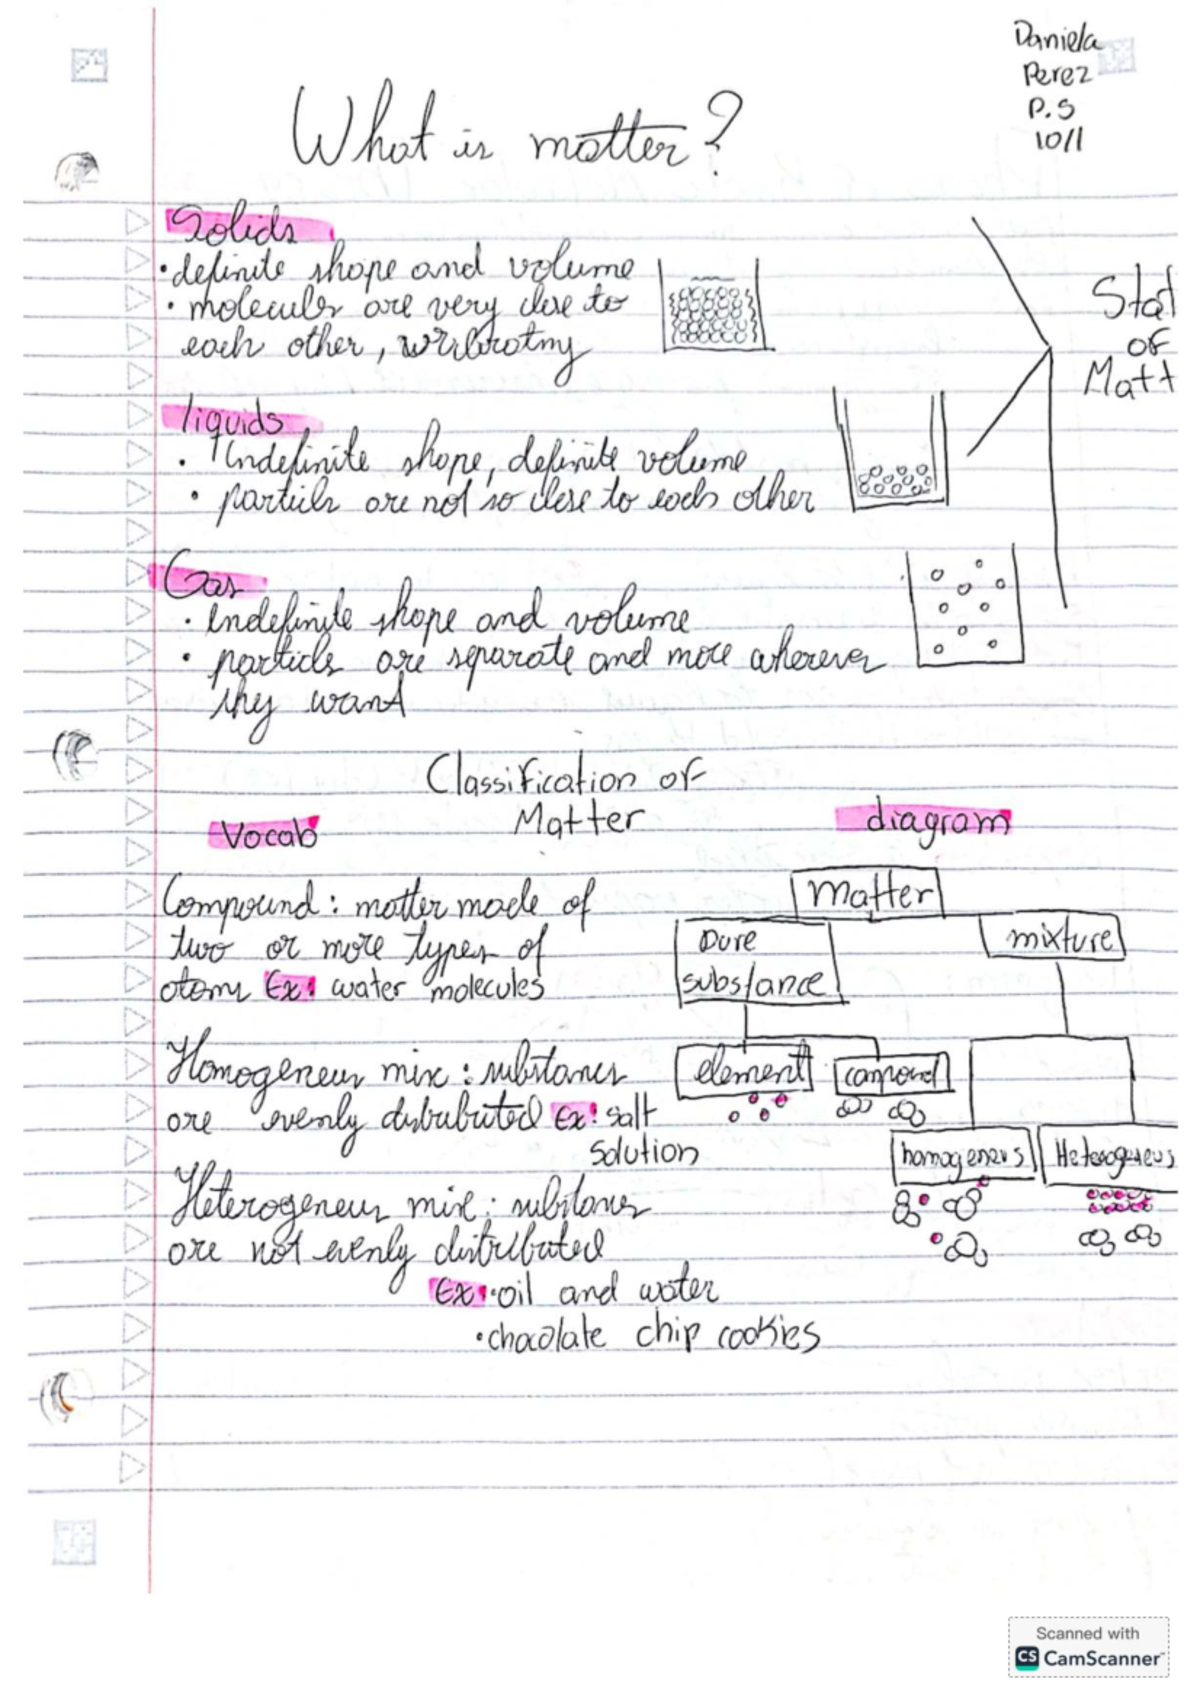 Daniela
Perez
P.S
10/1
What is matter?
Solids
• definite shape and volume
• molecules are very close to
each other,
States
of
Matt
liquids
• Indefinite shape, definite volume
• particls are not so close to each other
Gas
• Indefinite shape and volume
• particls are separate and move wherever
they want
Classification of
Matter
Vocab
diagram
Compound: matter made of
two or more types of
atoms Ex: water molecules
Homogeneus mix: substances
are evenly distributed Ex: salt
solution
Heterogeneus mix: substances
are not evenly distributed
Ex: • oil and water
• chocolate chip cookies
Matter
pure
substance
mixture
element
compound
homogeneus
Heterogeneus
Scanned with
CS CamScanner